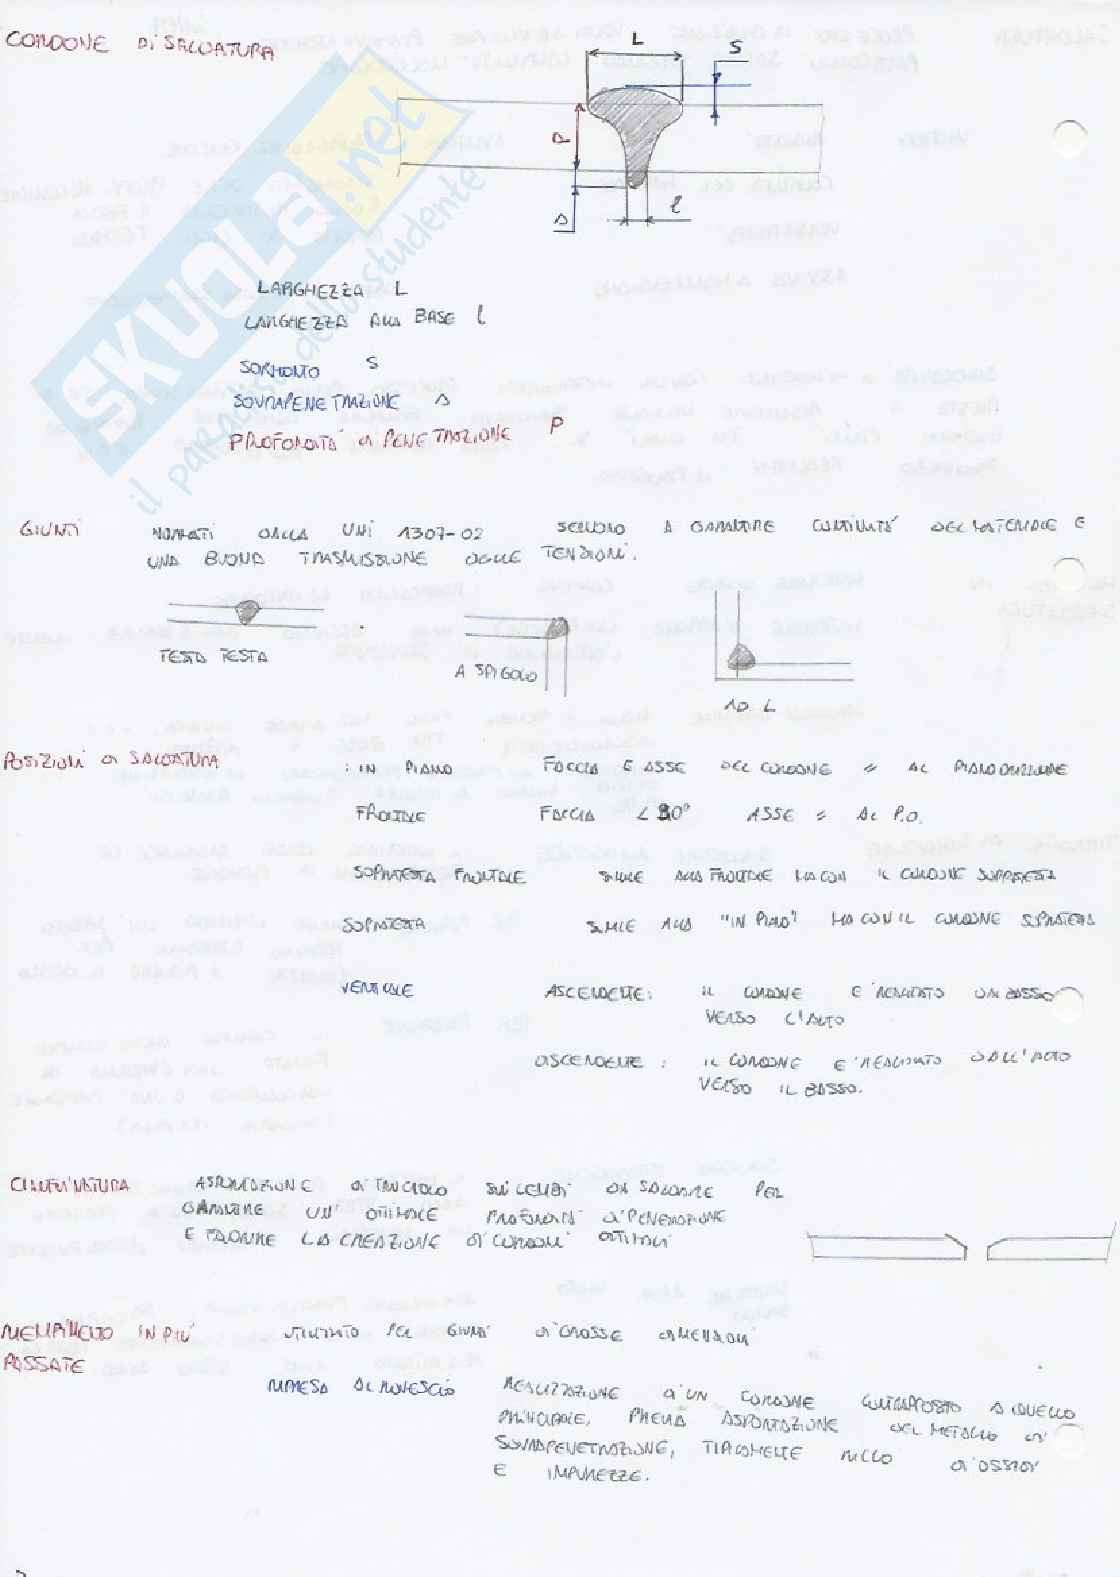 CORDONE DI SALDATURA
L
S
P
Δ
l
LARGHEZZA L
LARGHEZZA ALLA BASE l
SORMONTO S
SOVRAPENETRAZIONE Δ
PROFONDITÀ DI PENETRAZIONE P
SKUOLA.net
il paradiso dello studente
GIUNTI NORMATI DALLA UNI 1307-02 SERVONO A GARANTIRE CONTINUITÀ DEL MATERIALE E
UNA BUONA TRASMISSIONE DELLE TENSIONI.
TESTA TESTA
A SPIGOLO
AD L
POSIZIONI DI SALDATURA : IN PIANO FACCIA E ASSE DEL CORDONE // AL PIANO ORIZZONTALE
FRONTALE FACCIA ∠ 90° ASSE // AL P.O.
SOPRATESTA FRONTALE SIMILE ALLA FRONTALE MA CON IL CORDONE SOPRATESTA
SOPRATESTA SIMILE ALLA "IN PIANO" MA CON IL CORDONE SOPRATESTA
VERTICALE ASCENDENTE: IL CORDONE E' REALIZZATO DAL BASSO
VERSO L'ALTO
DISCENDENTE : IL CORDONE E' REALIZZATO DALL'ALTO
VERSO IL BASSO.
CIANFRINATURA ASPORTAZIONE DI TRUCIOLO SUI LEMBI DA SALDARE PER
GARANTIRE UN' OTTIMALE PROFONDITÀ DI PENETRAZIONE
E FAVORIRE LA CREAZIONE DI CORDONI OTTIMALI
RIEMPIMENTO IN PIÙ UTILIZZATO PER GIUNTI DI GROSSE DIMENSIONI
PASSATE
RIPRESA AL ROVESCIO REALIZZAZIONE DI UN CORDONE CONTRAPPOSTO A QUELLO
PRINCIPALE, PREVIA ASPORTAZIONE DEL METALLO DI
SOVRAPENETRAZIONE, TIPICAMENTE RICCO DI OSSIDI
E IMPUREZZE.